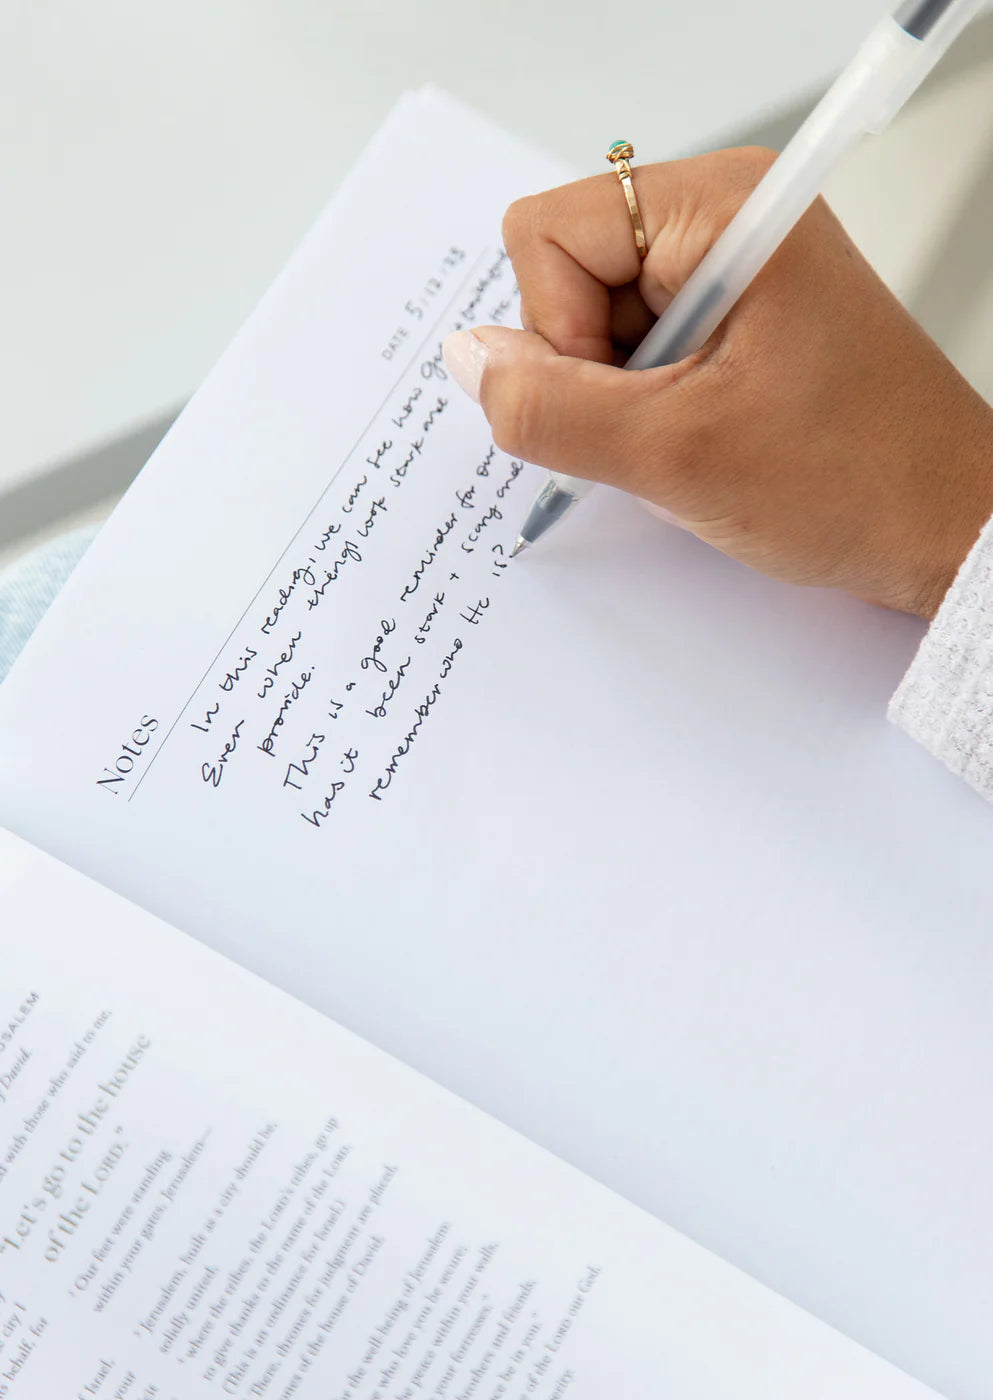 Notes
DATE 5/12/23
In this reading, we can see how
Even when things look stark and
provide.
This is a good reminder for our
has it been stark + scary and
remember who He is?
He
of David.
with those who said to me,
"Let's go to the house
of the LORD."
Our feet were standing
within your gates, Jerusalem—
Jerusalem, built as a city should be,
solidly united,
where the tribes, the LORD's tribes, go up
to give thanks to the name of the LORD.
(This is an ordinance for Israel.)
There, thrones for judgment are placed,
of the house of David.
for the well-being of Jerusalem:
who love you be secure;
peace within your walls,
your fortresses."
brothers and friends,
be in you."
of the LORD our God,
behalf, for
Israel,
your